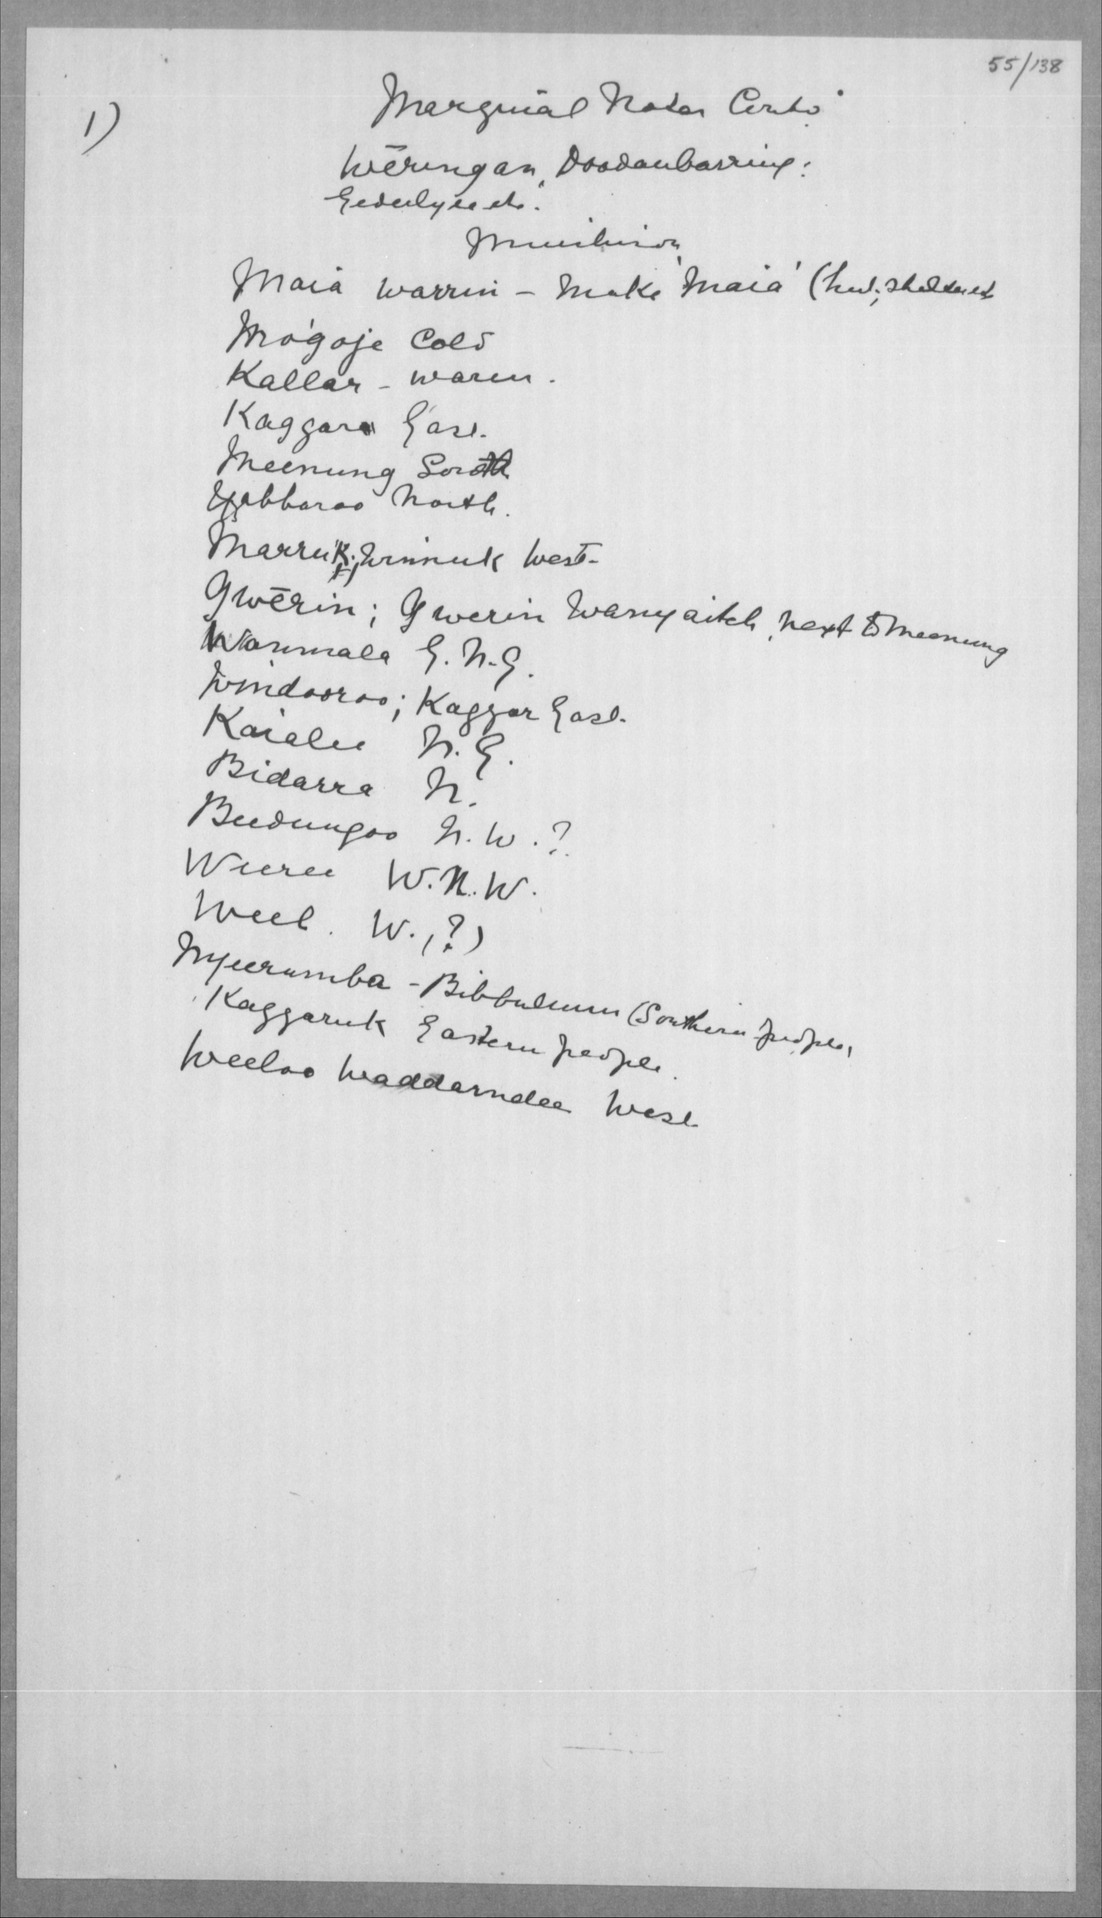 55/138
1)
Marginal Notes Contd
Wēringan, Doodanbarring:
Maia warrin - Make 'Maia' (hut, shelter etc
Mo'goje Cold
Kallar - warm.
Kaggara East.
Meenung South
Yabbaroo North.
Marruk; Winnuk West-
Gwērin; Gwerin Wanyaitch, next to Meenung
Wanmala E.N.E.
Windooroo; Kaggar East.
Kaialee N.E.
Bidarra N.
Beedungoo N.W.?
Weeree W.N.W.
Weel. W., ?)
Myeerumba - Bibbulmun (Southern people,
Kaggaruk Eastern people.
Weeloo Waddarndee West